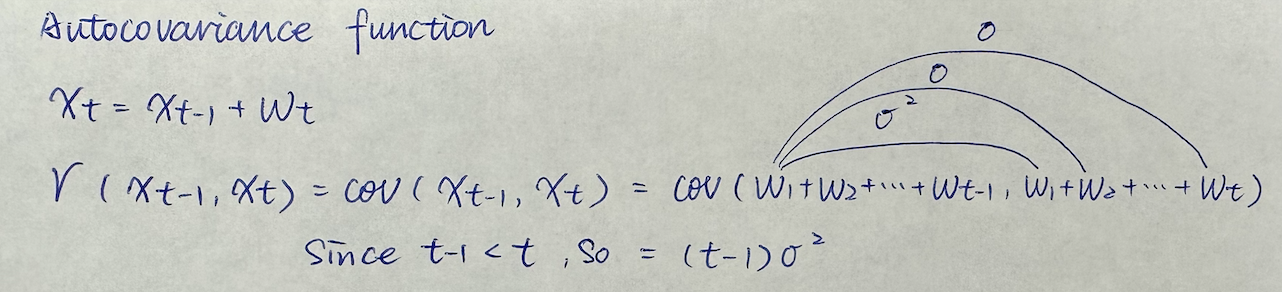 Autocovariance function
Xt = Xt-1 + Wt
0
0
σ²
γ(Xt-1, Xt) = cov(Xt-1, Xt) = cov(W1+W2+⋯+Wt-1, W1+W2+⋯+Wt)
Since t-1 < t, So = (t-1)σ²